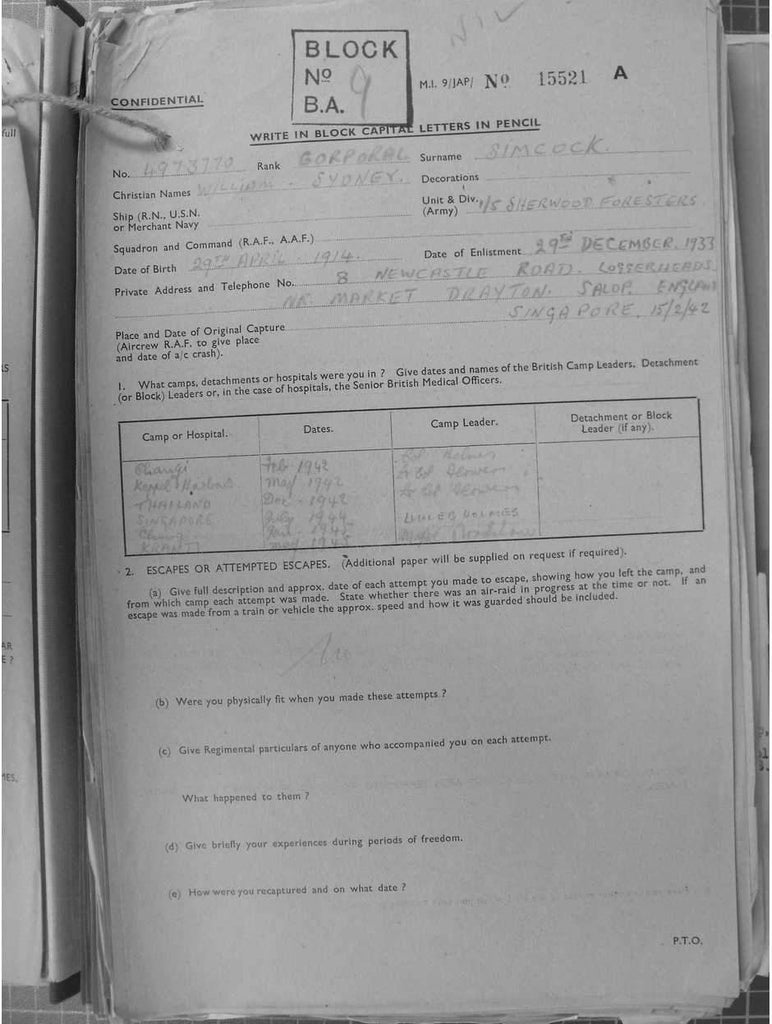 NIL
BLOCK
Nº 9
B.A.
M.I. 9/JAP/ Nº 15521 A
CONFIDENTIAL
WRITE IN BLOCK CAPITAL LETTERS IN PENCIL
No. 4973770 Rank CORPORAL Surname SIMCOCK.
Christian Names WILLIAM. SYDNEY. Decorations
Ship (R.N., U.S.N. or Merchant Navy Unit & Div. (Army) 1/5 SHERWOOD FORESTERS.
Squadron and Command (R.A.F., A.A.F.)
Date of Birth 29TH APRIL. 1914. Date of Enlistment 29TH DECEMBER. 1933
Private Address and Telephone No. 8 NEWCASTLE ROAD. LOGGERHEADS.
NR. MARKET DRAYTON. SALOP. ENGLAND
Place and Date of Original Capture SINGAPORE. 15/2/42
(Aircrew R.A.F. to give place
and date of a/c crash).
1. What camps, detachments or hospitals were you in ? Give dates and names of the British Camp Leaders, Detachment
(or Block) Leaders or, in the case of hospitals, the Senior British Medical Officers.
Camp or Hospital. Dates. Camp Leader. Detachment or Block Leader (if any).
Changi Feb 1942 Holmes
May 1942 Lt Col
THAILAND Dec. 1942 Lt Col
SINGAPORE July 1944 HOLMES
Changi 1945
KRANJI May 1945
2. ESCAPES OR ATTEMPTED ESCAPES. (Additional paper will be supplied on request if required).
(a) Give full description and approx. date of each attempt you made to escape, showing how you left the camp, and
from which camp each attempt was made. State whether there was an air-raid in progress at the time or not. If an
escape was made from a train or vehicle the approx. speed and how it was guarded should be included.
(b) Were you physically fit when you made these attempts ?
(c) Give Regimental particulars of anyone who accompanied you on each attempt.
What happened to them ?
(d) Give briefly your experiences during periods of freedom.
(e) How were you recaptured and on what date ?
P.T.O.